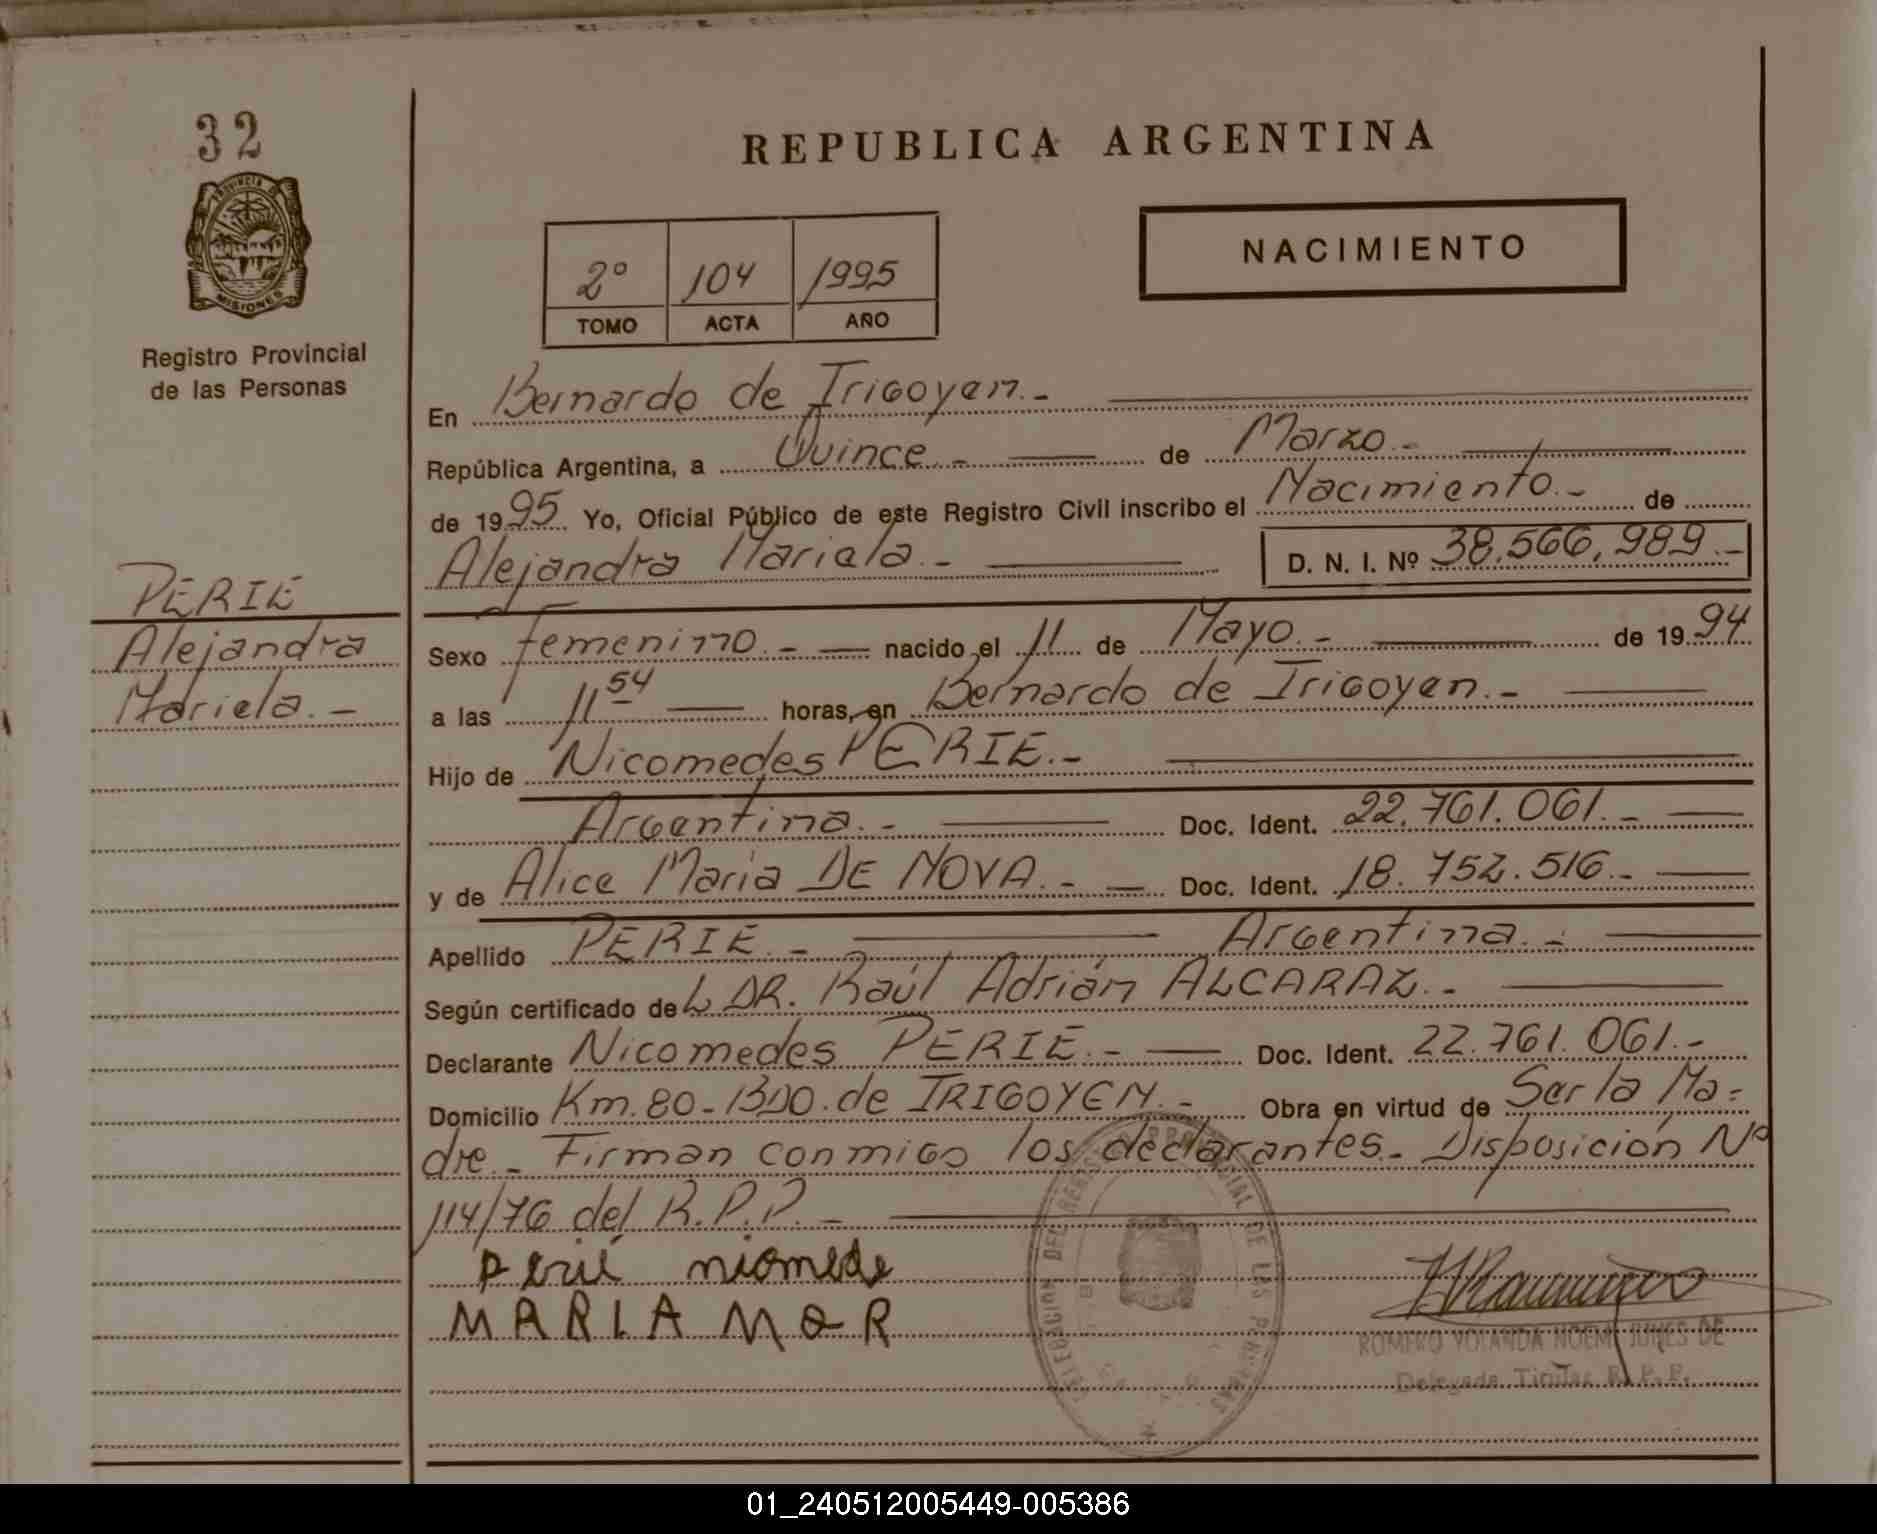 32
PROVINCIA DE
MISIONES
Registro Provincial
de las Personas
PERIE
Alejandra
Mariela.-
REPUBLICA ARGENTINA
2º 104 1995
TOMO ACTA AÑO
NACIMIENTO
En Bernardo de Irigoyen.-
República Argentina, a Quince.- de Marzo.-
de 1995 Yo, Oficial Público de este Registro Civil inscribo el Nacimiento.- de
Alejandra Mariela.- D. N. I. Nº 38.566.989.-
Sexo femenino.- nacido el 11 de Mayo.- de 1994
a las 11 54 horas, en Bernardo de Irigoyen.-
Hijo de Nicomedes PERIE.-
Argentina.- Doc. Ident. 22.761.061.-
y de Alice Maria DE NOVA.- Doc. Ident. 18.752.516.-
Apellido PERIE.- Argentina.-
Según certificado de L DR. Raúl Adrián ALCARAZ.-
Declarante Nicomedes PERIE.- Doc. Ident. 22.761.061.-
Domicilio Km.80-BDO.de IRIGOYEN.- Obra en virtud de Ser la Ma=
dre.- Firman conmigo los declarantes.- Disposición Nº
114/76 del R.P.P.-
perié niomede
MARIA
ROMERO YOLANDA NOEMI JUNES DE
Delegada Titular R.P.P.
DELEGACION DEL REGISTRO PROVINCIAL DE LAS PERSONAS
01_240512005449-005386